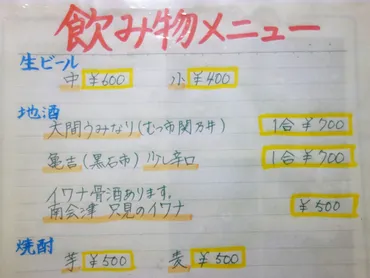 飲み物メニュー
生ビール
中 ¥600 小 ¥400
地酒
大間うみなり(むつ市関乃井) 1合 ¥700
亀吉(黒石市)少し辛口 1合 ¥700
イワナ骨酒あります。
南会津 只見のイワナ ¥500
焼酎
芋 ¥500 麦 ¥500